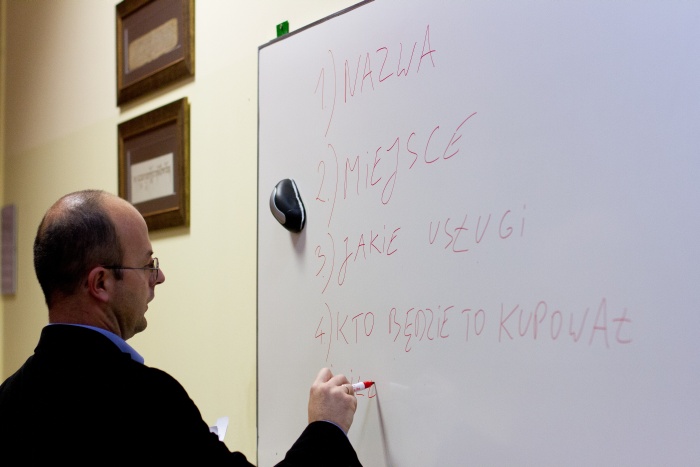 1) NAZWA
2.) MIEJSCE
3) JAKIE USŁUGI
4) KTO BĘDZIE TO KUPOWAŁ